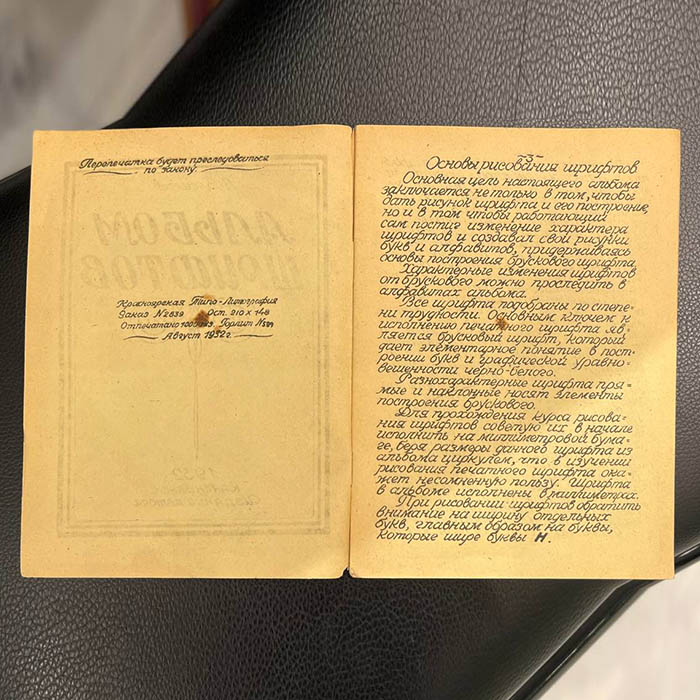 Перепечатка будет преследоваться
по закону.
АЛЬБОМ
ШРИФТОВ
Красноярская Типо-Литография
Заказ №2839 Ост. 210 х 148
Отпечатано экз. Горлит №
Август 1932г.
1932
-3-
Основы рисования шрифтов
Основная цель настоящего альбома
заключается не только в том, чтобы
дать рисунок шрифта и его построение,
но и в том чтобы работающий
сам постиг изменение характера
шрифтов и создавал свои рисунки
букв и алфавитов, придерживаясь
основы построения брускового шрифта.
Характерные изменения шрифтов
от брускового можно проследить в
алфавитах альбома.
Все шрифта подобраны по степе=
ни трудности. Основным ключем к
исполнению печатного шрифта яв=
ляется брусковый шрифт, который
дает элементарное понятие в пост=
роении букв и графической уравно=
вешенности черно-белого.
Разнохарактерные шрифта пря=
мые и наклонные носят элементы
построения брускового.
Для прохождения курса рисова=
ния шрифтов советую их в начале
исполнить на миллиметровой бума=
ге, беря размеры данного шрифта из
альбома циркулем, что в изучении
рисования печатного шрифта ока=
жет несомненную пользу. Шрифта
в альбоме исполнены в миллиметрах.
При рисовании шрифтов обратить
внимание на ширину отдельных
букв, главным образом на буквы,
которые шире буквы Н.